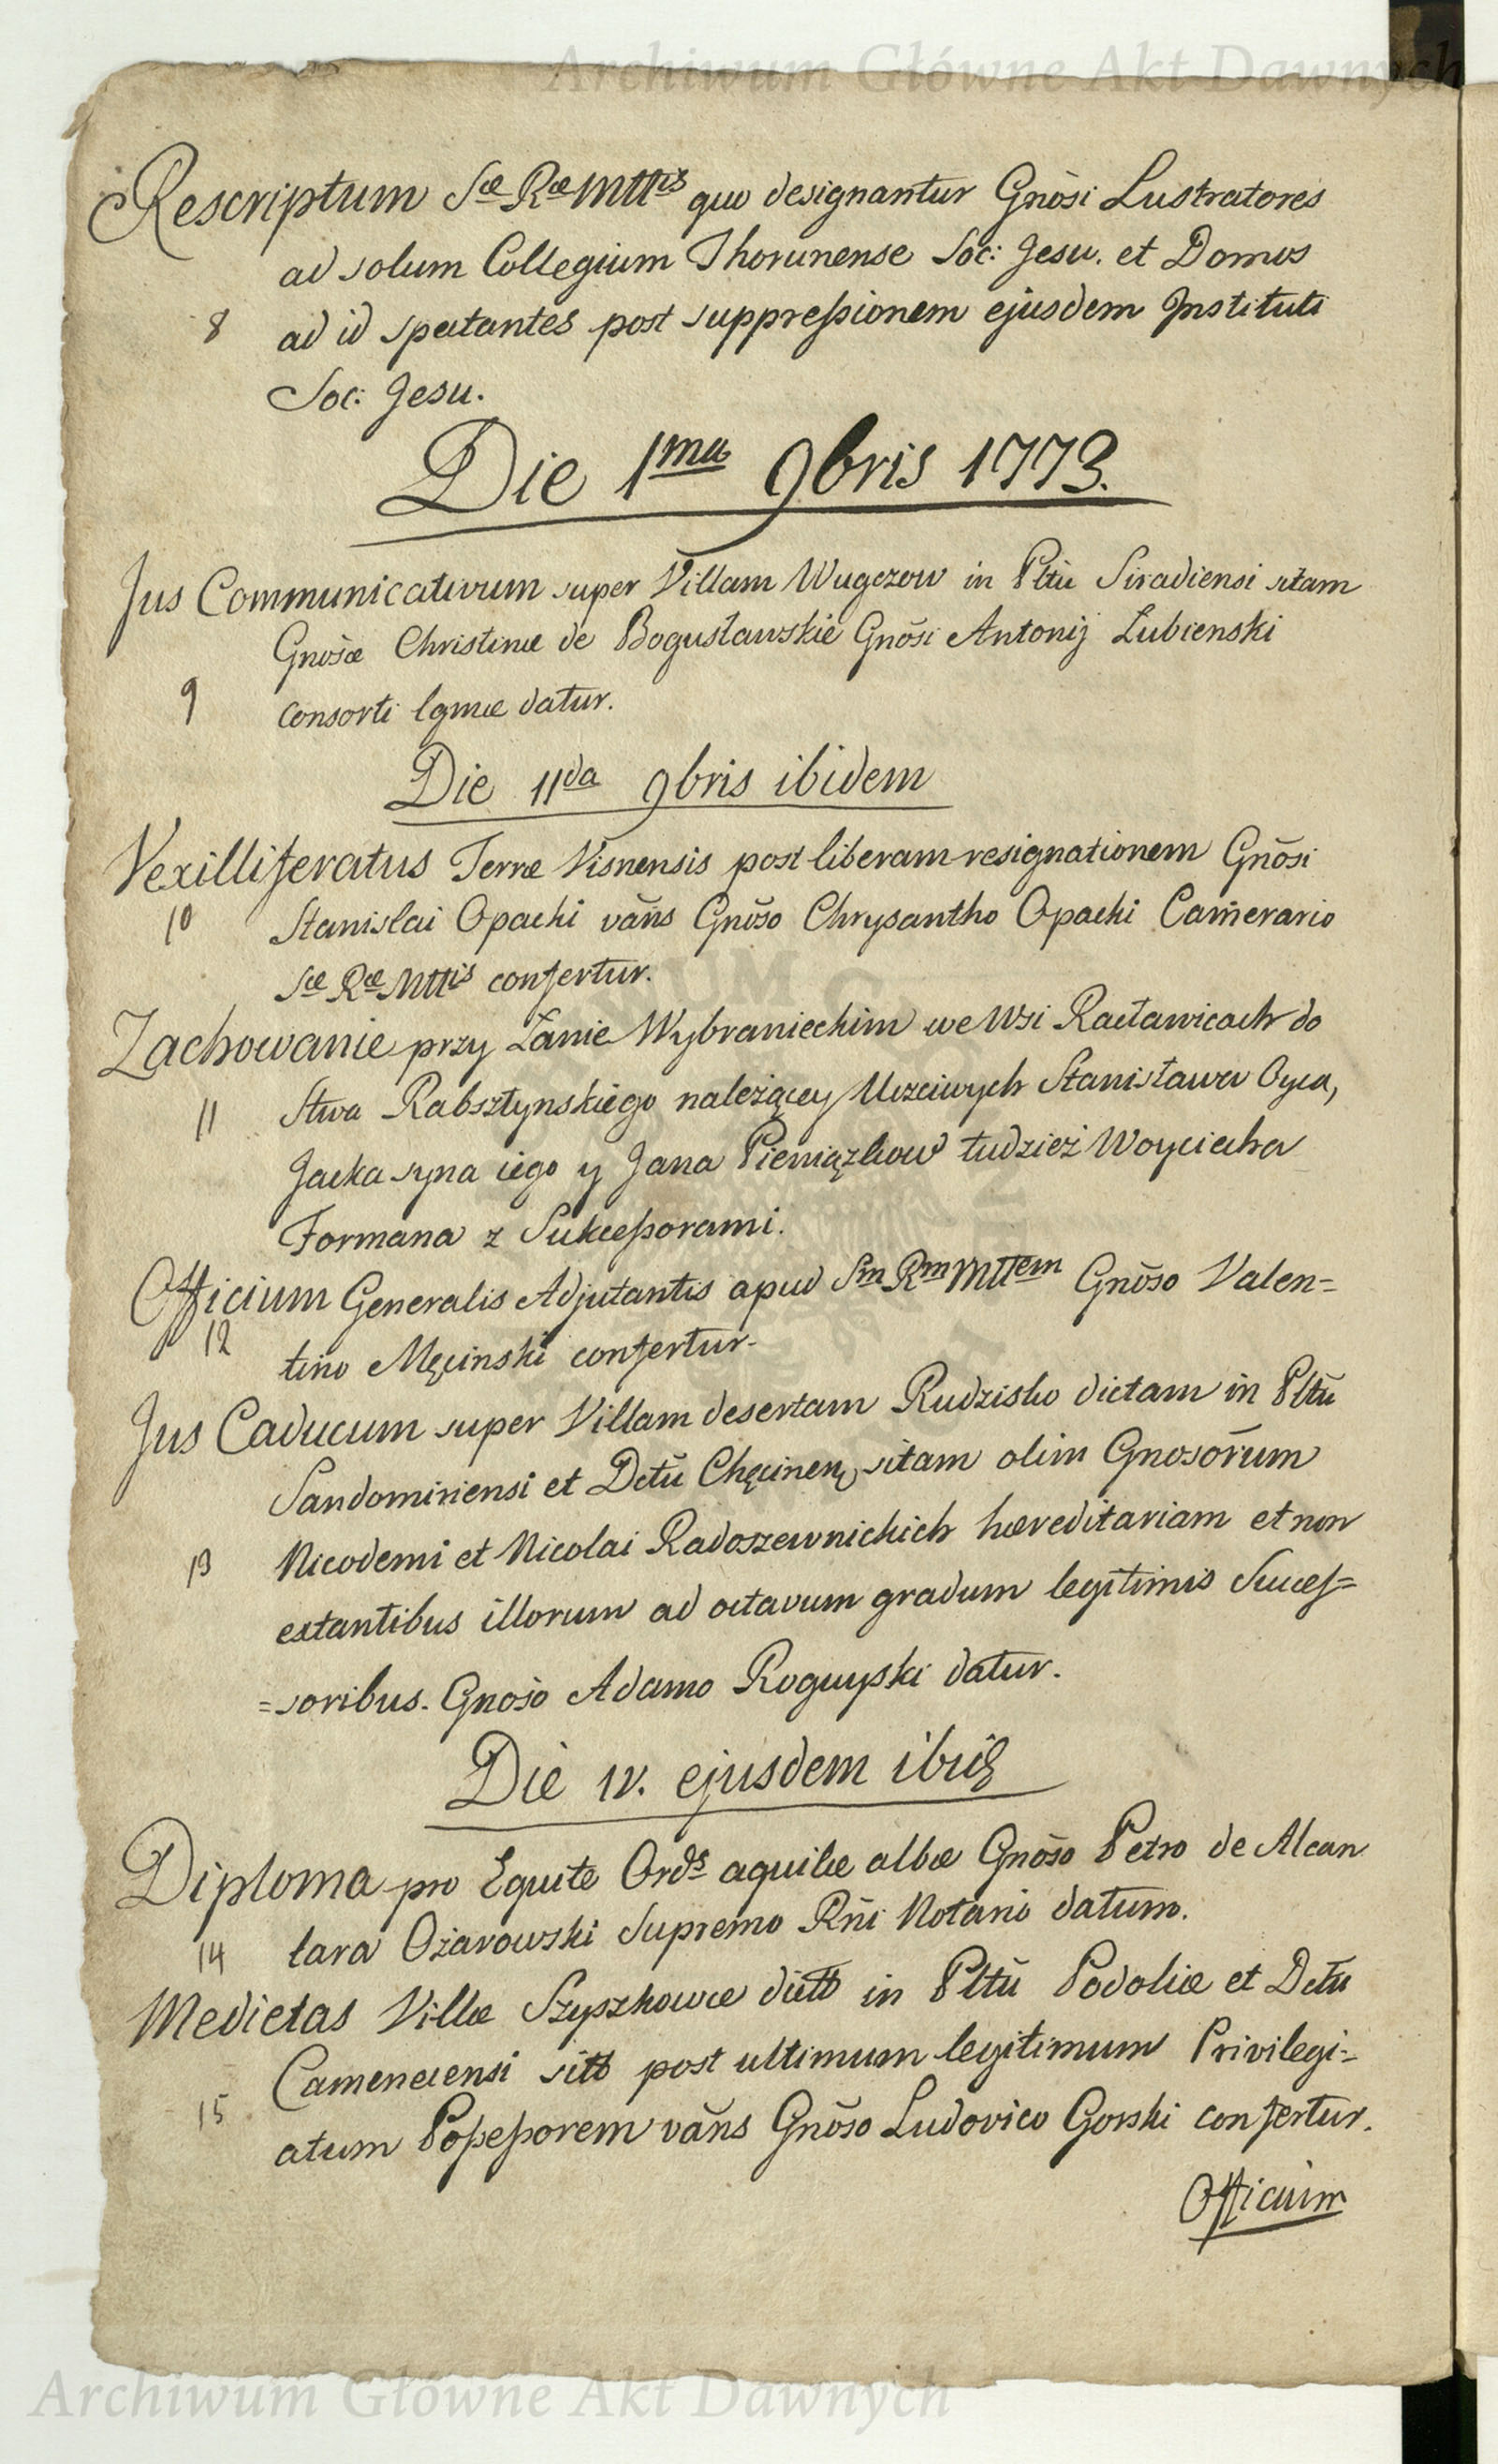 Archiwum Główne Akt Dawnych
Rescriptum Sæ Ræ Mttis quo designantur Gnōsi Lustratores
ad solum Collegium Thorunense Soc: Jesu. et Domos
8 ad id spectantes post suppressionem ejusdem Instituti
Soc: Jesu.
Die 1ma 9bris 1773.
Jus Communicativum super Villam Wugczow in Pltū Siradiensi sitam
Gnosæ Christinæ de Bogusławskie Gnōsi Antonij Lubienski
9 consorti lgmæ datur.
Die 11da 9bris ibidem
Vexilliferatus Terræ Visnensis post liberam resignationem Gnōsi
10 Stanislai Opacki vāns Gnōso Chrysantho Opacki Cam̄erario
Sæ Ræ Mttis confertur.
Zachowanie przy Łanie Wybranieckim we Wsi Racławicach do
11 Stwa Rabsztynskiego należącey Uczciwych Stanisława Oyca,
Jacka syna iego y Jana Pieniązkow tudzież Woyciecha
Formana z Sukcessorami.
Officium Generalis Adjutantis apud Sm Rm Mttem Gnōso Valen=
12 tino Męcinski confertur.
Jus Caducum super Villam desertam Rudzisko dictam in Pltū
Sandomiriensi et Dctū Chęcinen, sitam olim Gnosōrum
13 Nicodemi et Nicolai Radoszewnickich hæreditariam et non
extantibus illorum ad octavum gradum legitimis Succes=
=soribus. Gnoso Adamo Roguyski datur.
Die IV. ejusdem
Diploma pro Equite Ords aquilæ albæ Gnōso Petro de Alcan
14 tara Ożarowski Supremo Rn̄i Notario datum.
Medietas Villæ Szyszkowce in Pltū Podoliæ et Dctū
Camenecensi post ultimum legitimum Privilegi=
15 atum Possessorem vāns Gnōso Ludovico Gorski confertur.
Officium
Archiwum Główne Akt Dawnych